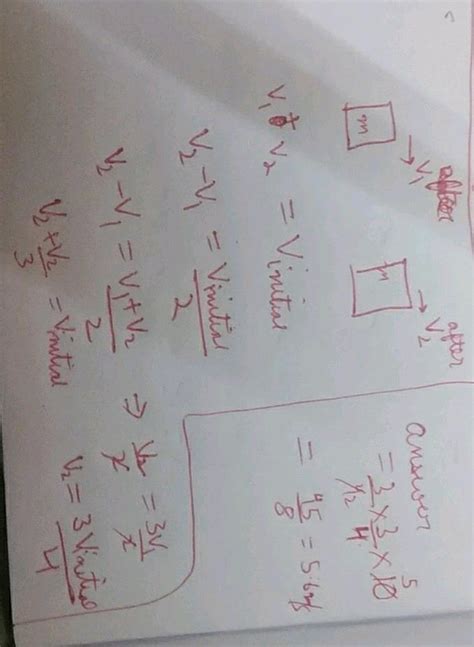 after
after
m → V₁
m → V₂
V₁ + V₂ = Vinitial
V₂ - V₁ = Vinitial / 2
V₂ - V₁ = V₁ + V₂ / 2 ⇒ V₂ / 2 = 3V₁ / 2
V₂ + V₂/3 = Vinitial
V₂ = 3Vinitial / 4
answer
= 3/2 × 3/4 × 10 5
= 45/8 = 5.6 m/s